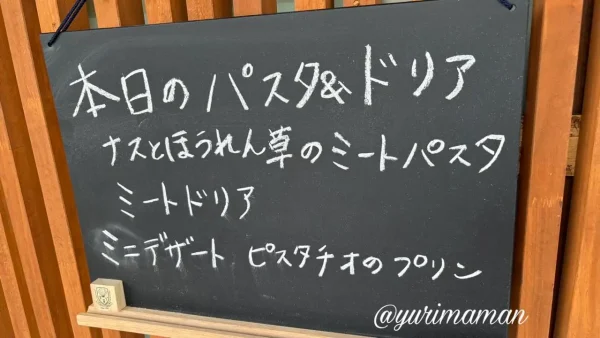 本日のパスタ&ドリア
ナスとほうれん草のミートパスタ
ミートドリア
ミニデザート ピスタチオのプリン
@yurimaman